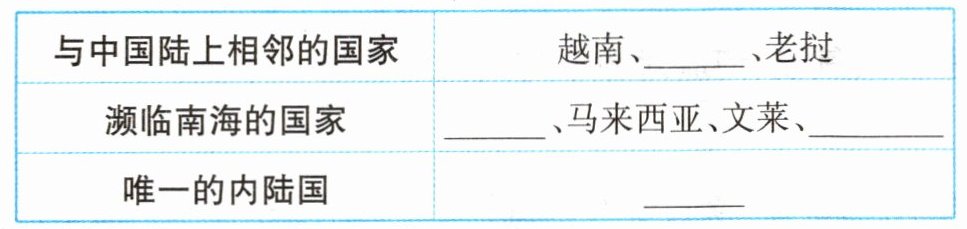 与中国陆上相邻的国家 越南、______、老挝
濒临南海的国家 ______、马来西亚、文莱、________
唯一的内陆国 ______